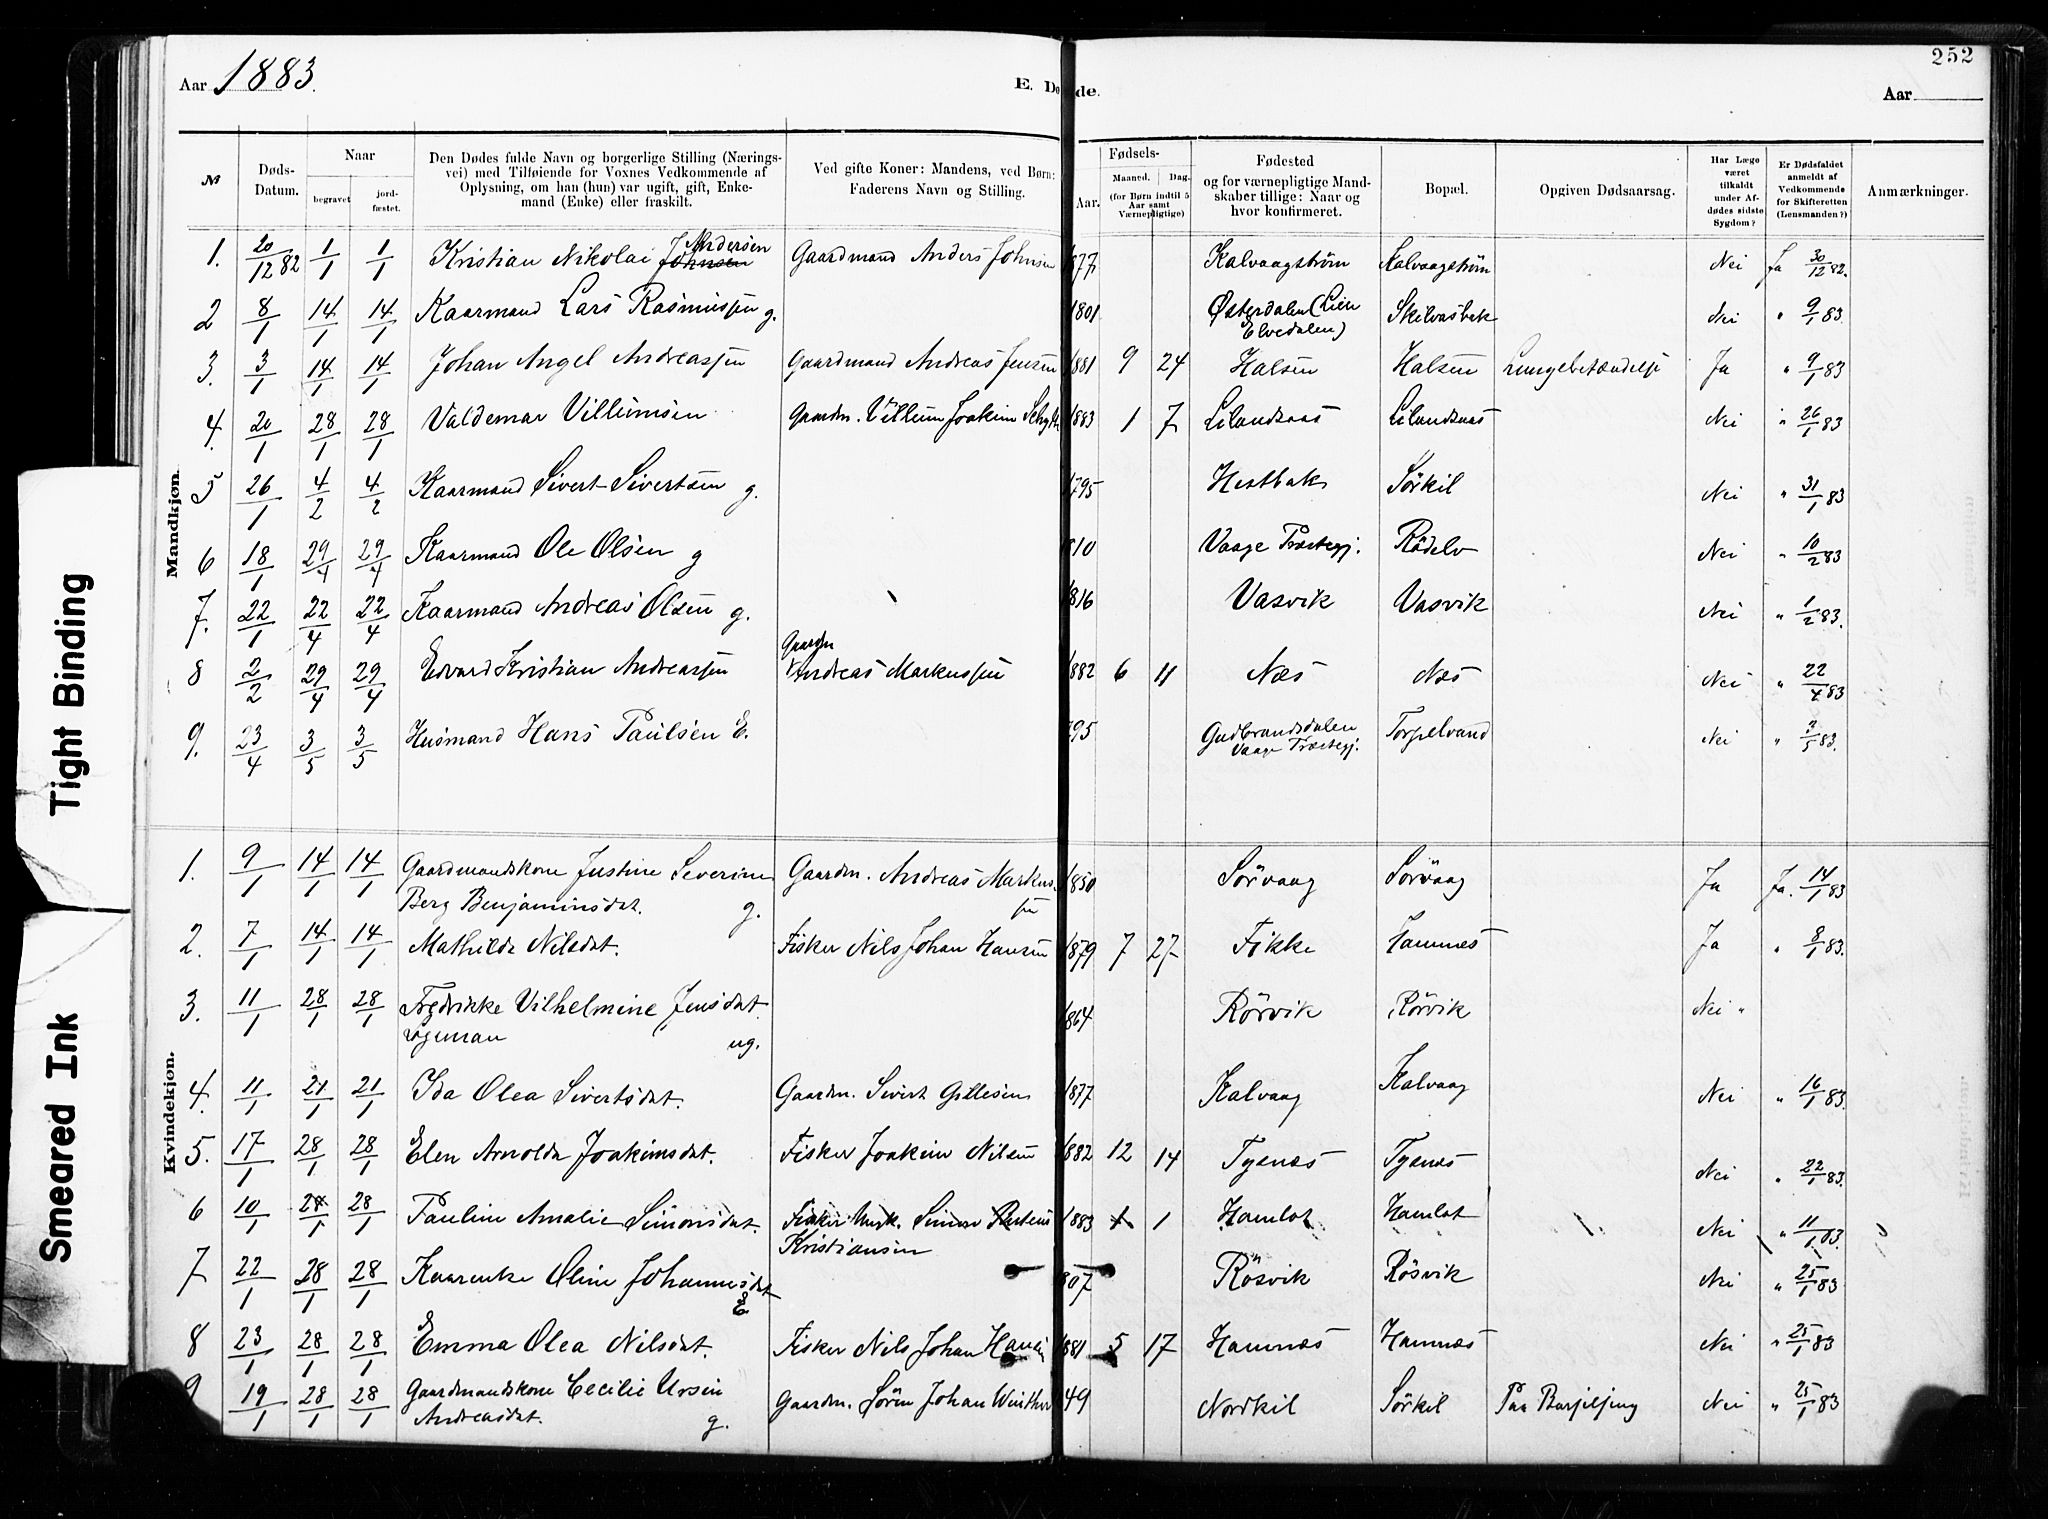 252
Aar 1883. E. Døde. Aar
№ Døds-Datum. Naar begravet jord-fæstet. Den Dødes fulde Navn og borgerlige Stilling (Nærings-vei) med Tilføiende for Voxnes Vedkommende af Oplysning, om han (hun) var ugift, gift, Enke-mand (Enke) eller fraskilt. Ved gifte Koner: Mandens, ved Børn: Faderens Navn og Stilling. Fødsels- Aar. Maaned. Dag. (for Børn indtil 5 Aar samt Værnepligtige) Fødested og for værnepligtige Mand-skaber tillige: Naar og hvor konfirmeret. Bopæl. Opgiven Dødsaarsag. Har Læge været tilkaldt under Af-dødes sidste Sygdom? Er Dødsfaldet anmeldt af Vedkommende for Skifteretten (Lensmanden?) Anmærkninger.
Mandkjøn.
1. 20/12 82 1/1 1/1 Kristian Nikolai Johnsen Andersen Gaardmand Anders Johnsen 1877 Kalvaagstrøm Kalvaagstrøm Nei Ja 30/12 82.
2 8/1 14/1 14/1 Kaarmand Lars Rasmussen g. 1801 Østerdalen (Lien Elvedalen) Skilvasbak Nei " 9/1 83.
3. 3/1 14/1 14/1 Johan Angel Andreassen Gaardmand Andreas Jensen 1881 9 24 Halsen Halsen Lungebetændelse Ja " 9/1 83
4. 20/1 28/1 28/1 Valdemar Villumsen Gaardm. Villum Joakim 1883 1 7 Lilandsaas Lilandsaas Nei " 26/1 83
5 26/1 4/2 4/2 Kaarmand Sivert Sivertsen g. 1795 Hestbak Sörkil Nei " 31/1 83
6 18/1 29/4 29/4 Kaarmand Ole Olsen g 810 Vaage Præstegj. Rödelv Nei " 10/2 83
7. 22/1 22/4 22/4 Kaarmand Andreas Olsen g. 1816 Vasvik Vasvik Nei " 1/2 83.
8 2/2 29/4 29/4 Edvard Kristian Andreassen Gaardm Andreas Markussen 1882 6 11 Næs Næs Nei " 22/4 83
9. 23/4 3/5 3/5 Husmand Hans Paulsen E. 795 Gudbrandsdalen Vaage Præstegj. Torpelvand Nei " 3/5 83.
Kvindekjøn.
1. 9/1 14/1 14/1 Gaardmandskone Justine Severine Berg Benjaminsdat. g. Gaardm. Andreas Markussen 1850 Sörvaag Sörvaag Ja Ja. 14/1 83
2. 7/1 14/1 14/1 Mathilde Nilsdat. Fisker Nils Johan Hansen 1879 7 27 Fikke Hamnes Ja " 8/1 83.
3. 11/1 28/1 28/1 Fredrikke Vilhelmine Jensdat. Logeman ug. 1864 Rörvik Rörvik Nei "
4. 11/1 21/1 21/1 Ida Olea Sivertsdat. Gaardm. Sivert Gillesen 1877 Kalvaag Kalvaag Nei " 16/1 83.
5. 17/1 28/1 28/1 Elen Arnolda Joakimsdat. Fisker Joakim Nilsen 1882 12 14 Tysnæs Tysnæs Nei " 22/1 83.
6 10/1 28/1 28/1 Pauline Amalie Simonsdat. Fisker Simon Kristiansen 1883 1 1 Hamlot Hamlot Nei " 11/1 83.
7 22/1 28/1 28/1 Kaarenke Oline Johannesdat E. 807 Rösvik Rösvik Nei " 25/1 83
8 23/1 28/1 28/1 Emma Olea Nilsdat. Fisker Nils Johan Hansen 1881 5 17 Hamnæs Hamnæs Nei " 25/1 83
9 19/1 28/1 28/1 Gaardmandskone Cecilie Ursin Andreasdat. g. Gaardm. Sören Johan Winther 49 Nordkil Sörkil Paa Barselseng Nei " 25/1 83
Tight Binding
Smeared Ink